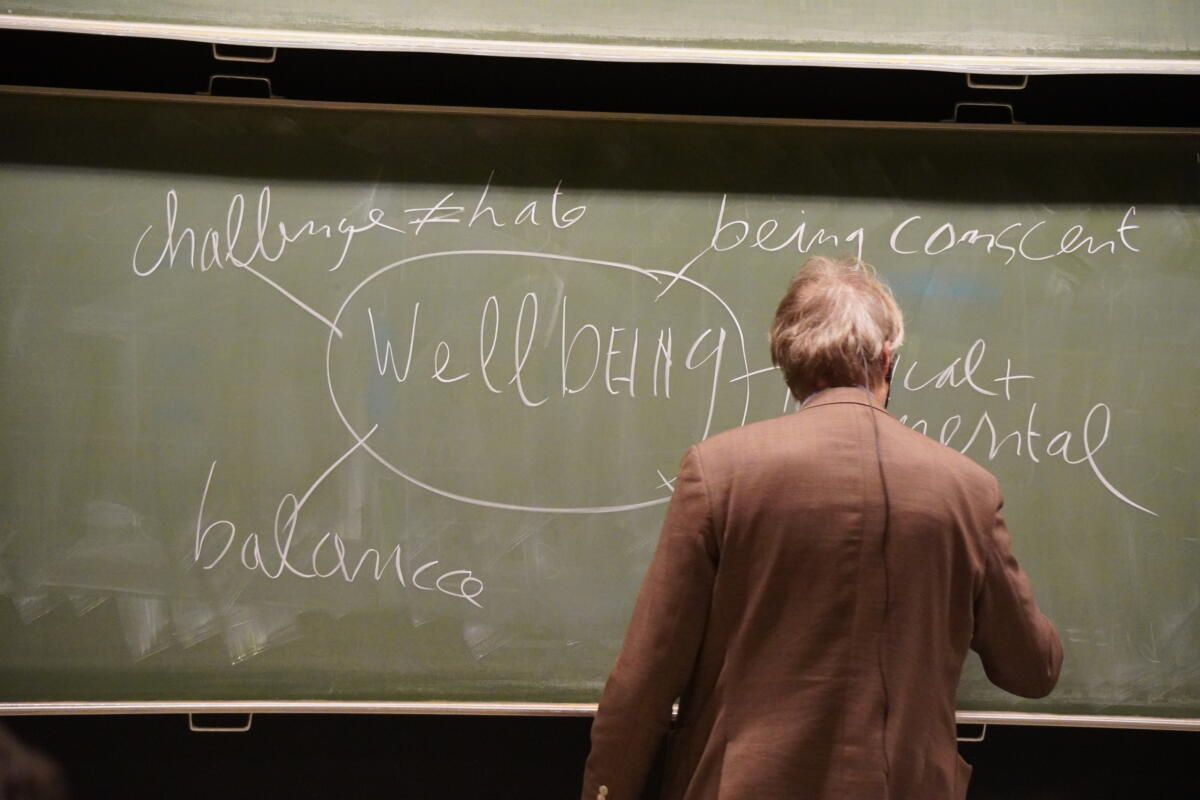 challenge ≠ hate
being conscent
WellbEINg
ical +
mental
balance